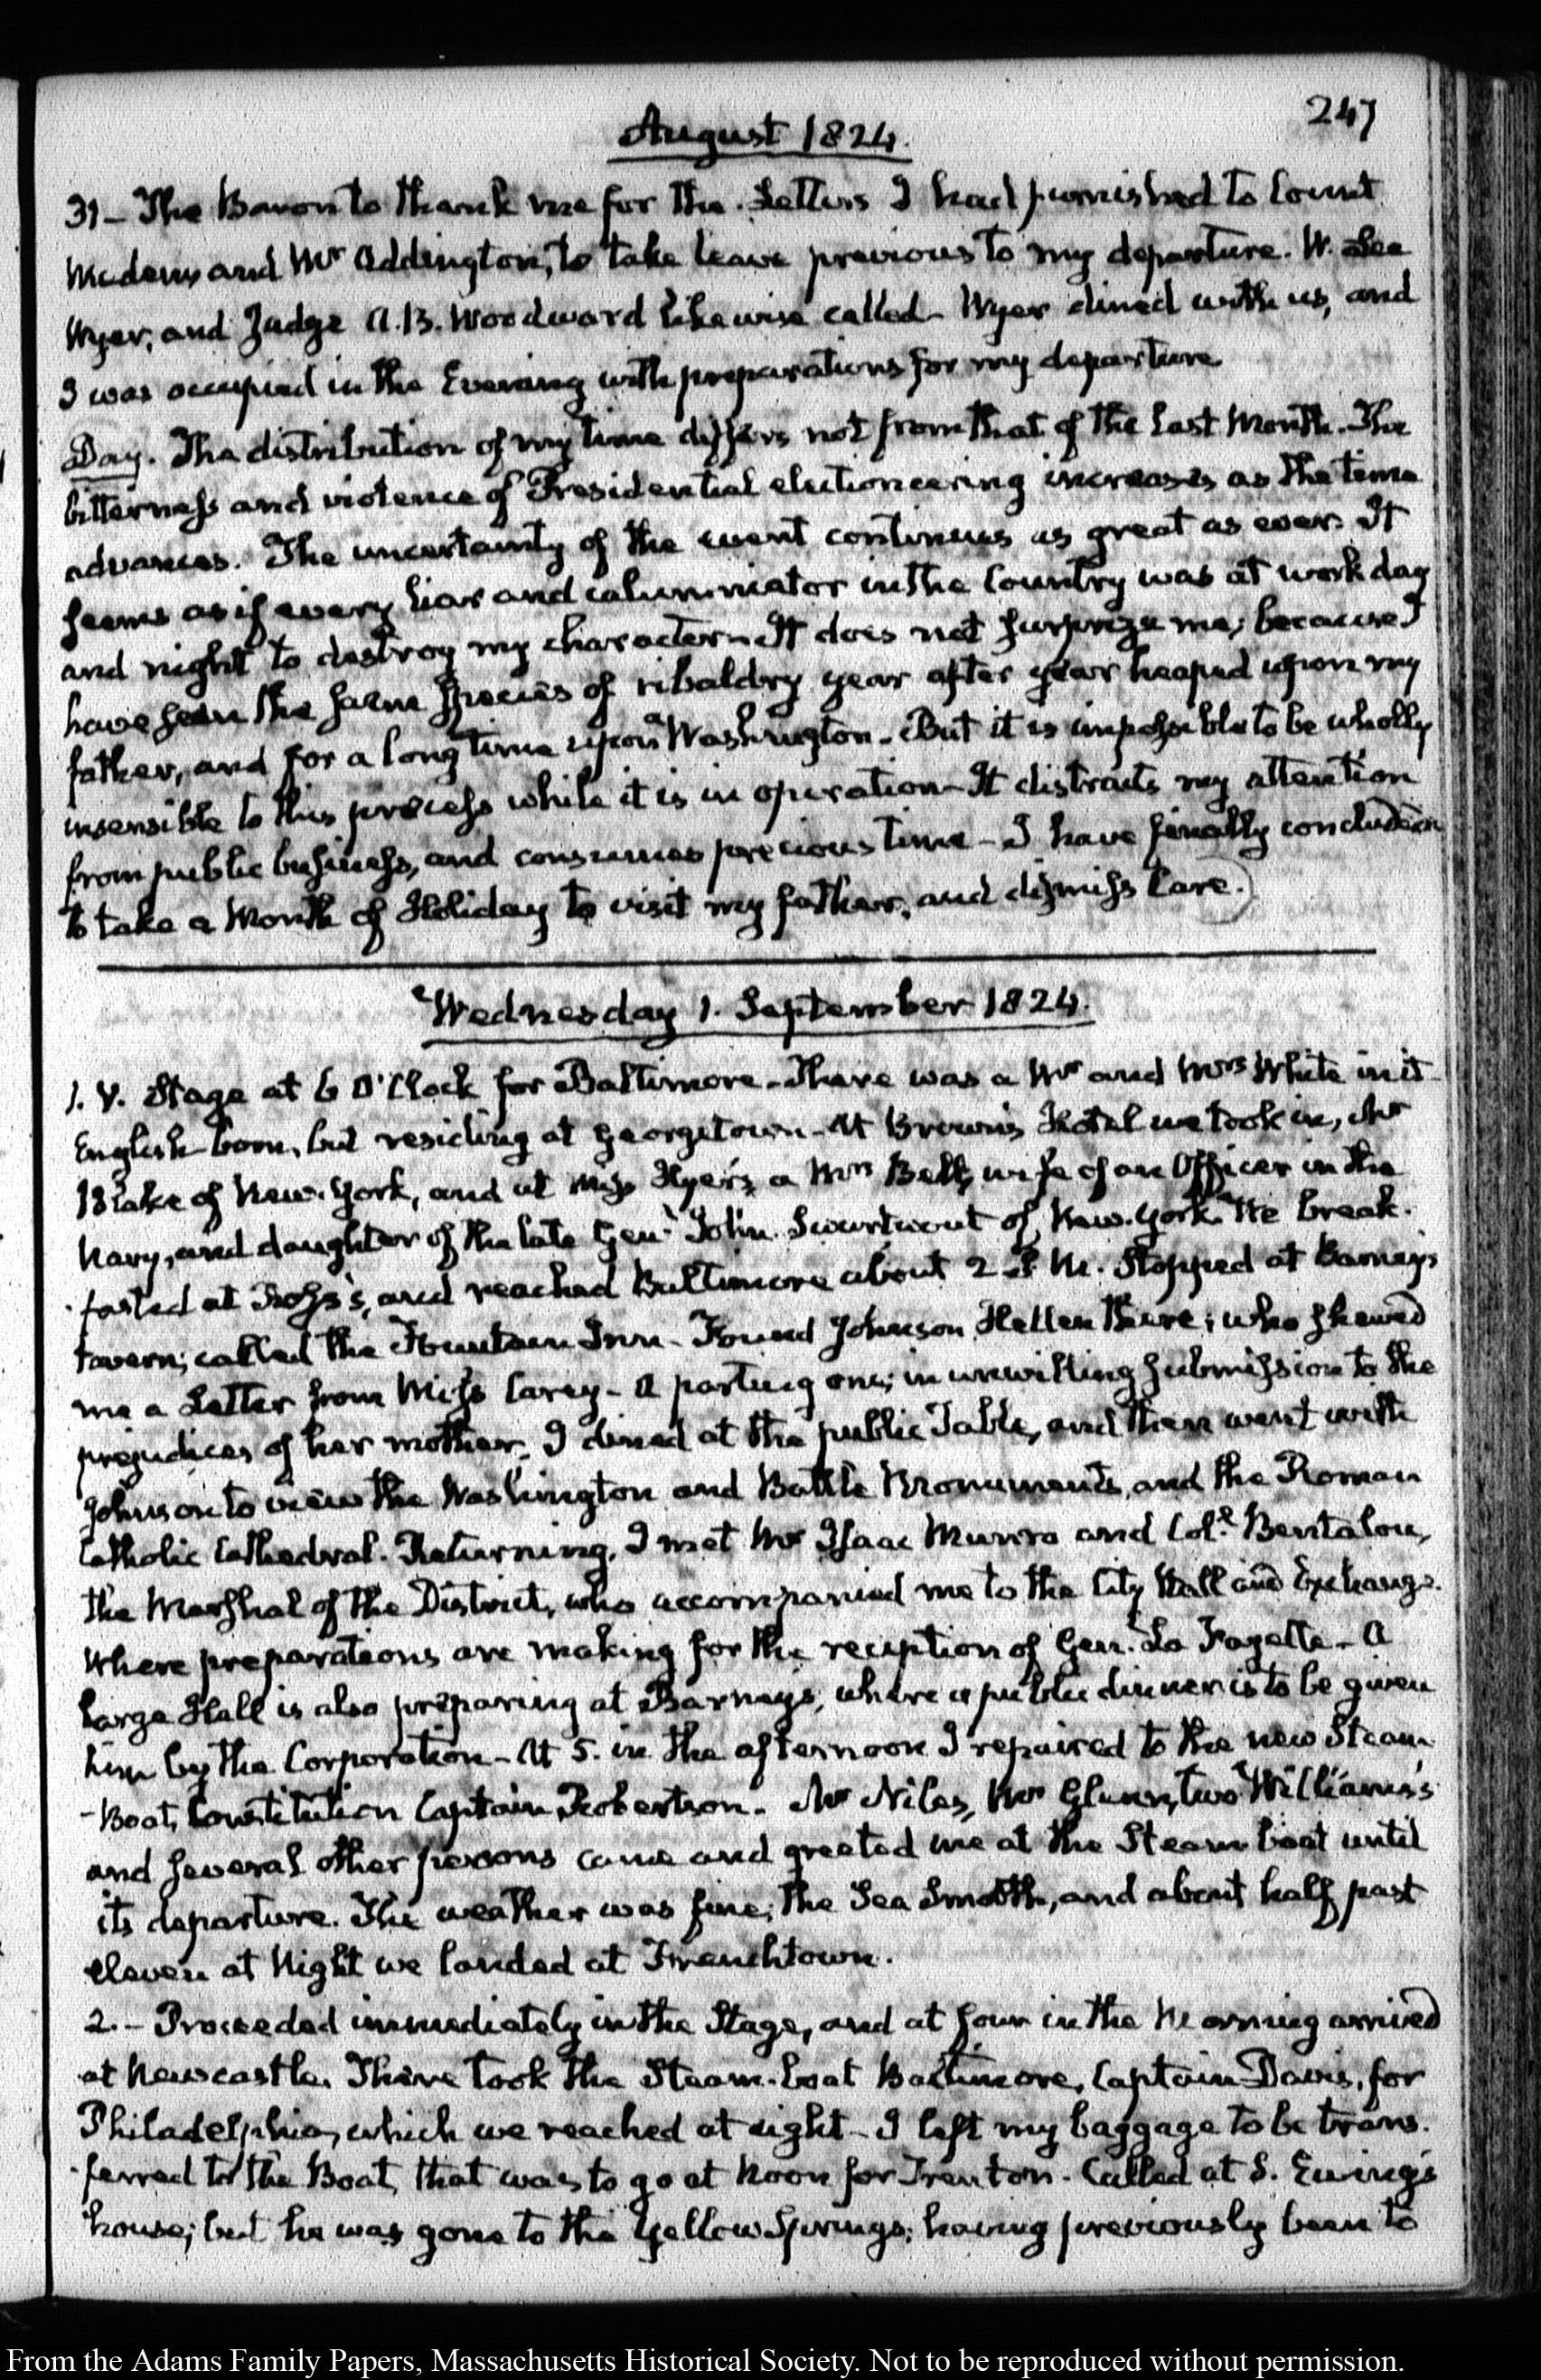 247
August 1824.
31 – The Baron to thank me for the Letters I had furnished to Count
and Mr Addington, to take leave previous to my departure. W. Lee
Wyer, and Judge A. B. Woodward likewise called – Wyer dined with us, and
I was occupied in the Evening with preparations for my departure
Day. The distribution of my time differs not from that of the last Month. The
bitterness and violence of Presidential electioneering increases as the time
advances. The uncertainty of the event continues as great as ever. It
seems as if every liar and calumniator in the Country was at work day
and night to destroy my character – It does not surprize me, because I
have seen the same species of ribaldry year after year heaped upon my
father, and for a long time upon Washington – But it is impossible to be wholly
insensible to this process while it is in operation – It distracts my attention
from public business, and consumes precious time – I have finally concluded
to take a Month of Holiday to visit my father, and dismiss Care.
Wednesday 1. September 1824.
1. V. Stage at 6 O'Clock for Baltimore – There was a Mr and Mrs White in it
English born, but residing at Georgetown – At Brown's Hotel we took in, Mr
Blake of New-York, and at Miss Hyer's, a Mrs Bell, wife of an Officer in the
Navy, and daughter of the late Genl John Swartwout of New-York. We break-
-fasted at Ross's, and reached Baltimore about 2 P. M. Stopped at Barney's
tavern; called the Fountain Inn – Found Johnson Hellen there; who shewed
me a Letter from Miss Carey – A parting one; in unwilling submission to the
prejudices of her mother. I dined at the public Table, and then went with
Johnson to view the Washington and Battle Monuments, and the Roman
Catholic Cathedral. Returning, I met Mr Isaac Munro and Coll Bentalou,
the Marshal of the District, who accompanied me to the City Hall and Exchange.
Where preparations are making for the reception of Genl La Fayette – A
large Hall is also preparing at Barney's, where a public dinner is to be given
him by the Corporation – At 5. in the afternoon I repaired to the new Steam
-Boat, Constitution Captain Robertson. Mr Niles, Mr Glenn, two Williams's
and several other persons came and greeted me at the Steam boat until
its departure. The weather was fine; the Sea Smooth, and about half past
eleven at Night we landed at Frenchtown.
2. – Proceeded immediately in the Stage, and at four in the Morning arrived
at Newcastle. There took the Steam-boat Baltimore, Captain Davis, for
Philadelphia, which we reached at eight – I left my baggage to be trans-
-ferred to the Boat, that was to go at Noon for Trenton – Called at S. Ewing's
house; but he was gone to the Yellow Springs; having previously been to
From the Adams Family Papers, Massachusetts Historical Society. Not to be reproduced without permission.